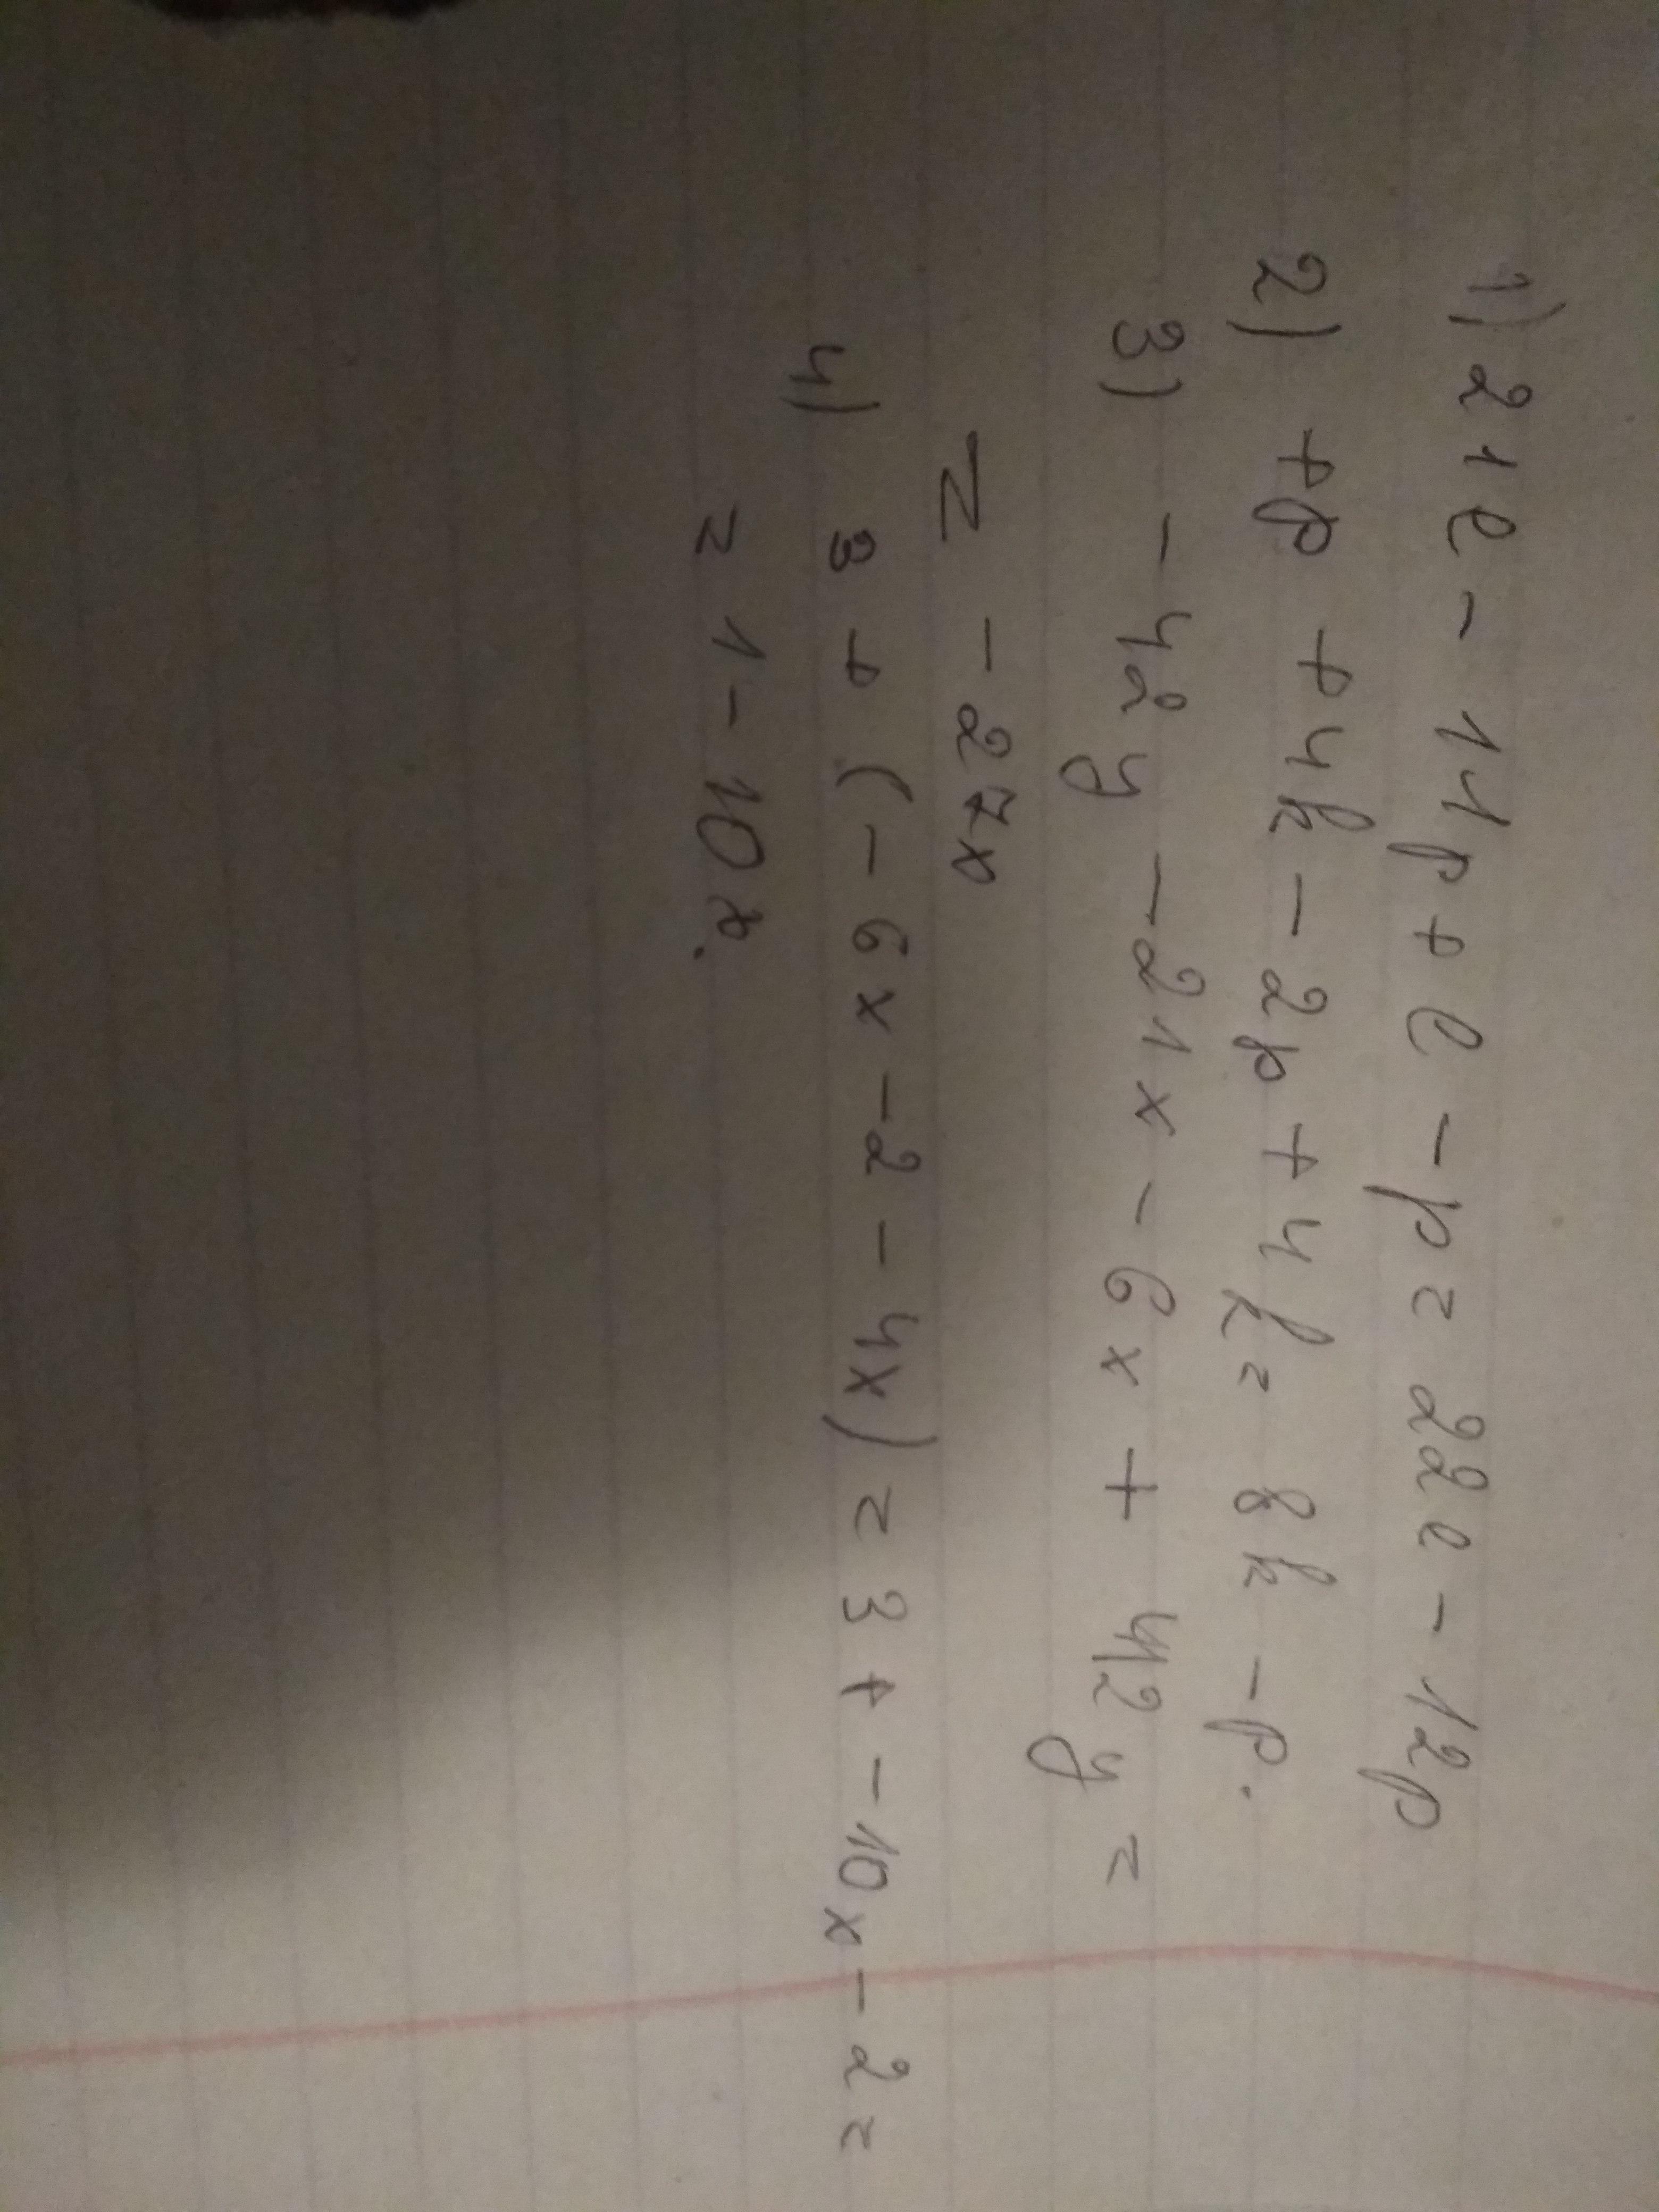 1) 21l - 11p + l - p = 22l - 12p
2) +p + 4k - 2p + 4k = 8k - p.
3) - 42y - 21x - 6x + 42y =
= - 27x
4) 3 + (- 6x - 2 - 4x) = 3 + - 10x - 2 =
= 1 - 10x.